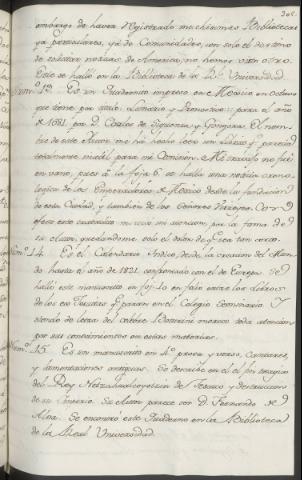 embargo de haver registrado muchisimas Bibliotecas
ya particulares, ya de Comunidades, con solo el destino
de solicitar noticias de America, no hemos visto otro.
Este se halla en la Biblioteca de la Rl. Universidad.
Num.º 13. Es un Quadernito impreso en Mexico en octavo
que tiene por titulo: Lunario y Pronostico para el año
de 1681. por D. Carlos de Siguenza y Gongora. El nom-
bre de este Autor me ha hecho leer un Librito que parecia
totalmente inutil para mi Comision. Mi travajo no fué
en vano, pues à la foja 6 se halla una noticia crono-
logica de los Emperadores de Mexico desde la fundacion
de esta Ciudad, y tambien de los Señores Virreyes. Con
efecto este Quadernito me avivó mi atencion, por la fama de
su Autor, quedandome solo el dolor de que sea tan corto.
Num.º 14. Es el Calendario Indico, desde la creacion del Mun-
do hasta el año de 1821. confrontado con el de Europa. Se
halló este manuscrito en foj. 10 en folio entre los Libros
de los ex Jesuitas que paran en el Colegio Seminario. Y
siendo de letra del celebre Boturini merece toda atencion
por sus conocimientos en estas materias.
Num.º 15. Es un manuscrito en 4.º prosa, y verso, Cantares,
y lamentaciones antiguas. Se describe en el el fin tragico
del Rey Netzahualcoyotzin de Tezcuco y destruccion
de su Imperio. Su Autor parece ser D. Fernando de
Alba. Se encontró este Quaderno en la Biblioteca
de la Real Universidad.